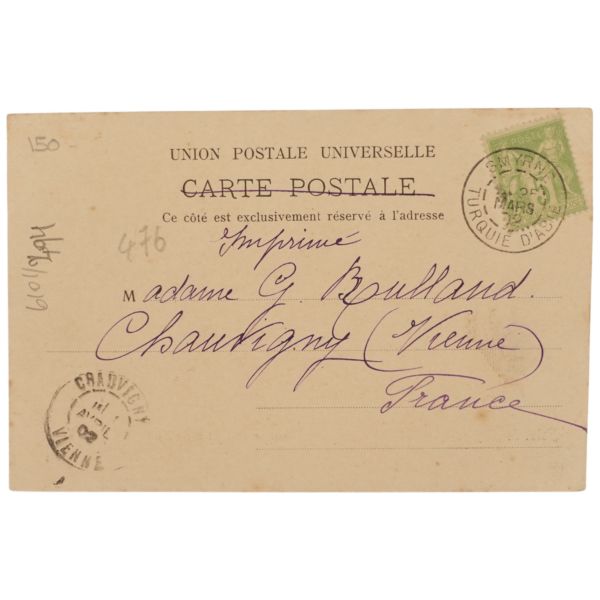 150-
UNION POSTALE UNIVERSELLE
CARTE POSTALE
Ce côté est exclusivement réservé à l'adresse
Imprimé
476
Madame G. Rulland.
Chauvigny (Vienne)
France
SMYRNE
25
MARS
02
TURQUIE D'ASIE
CHAUVIGNY
AVRIL
02
VIENNE